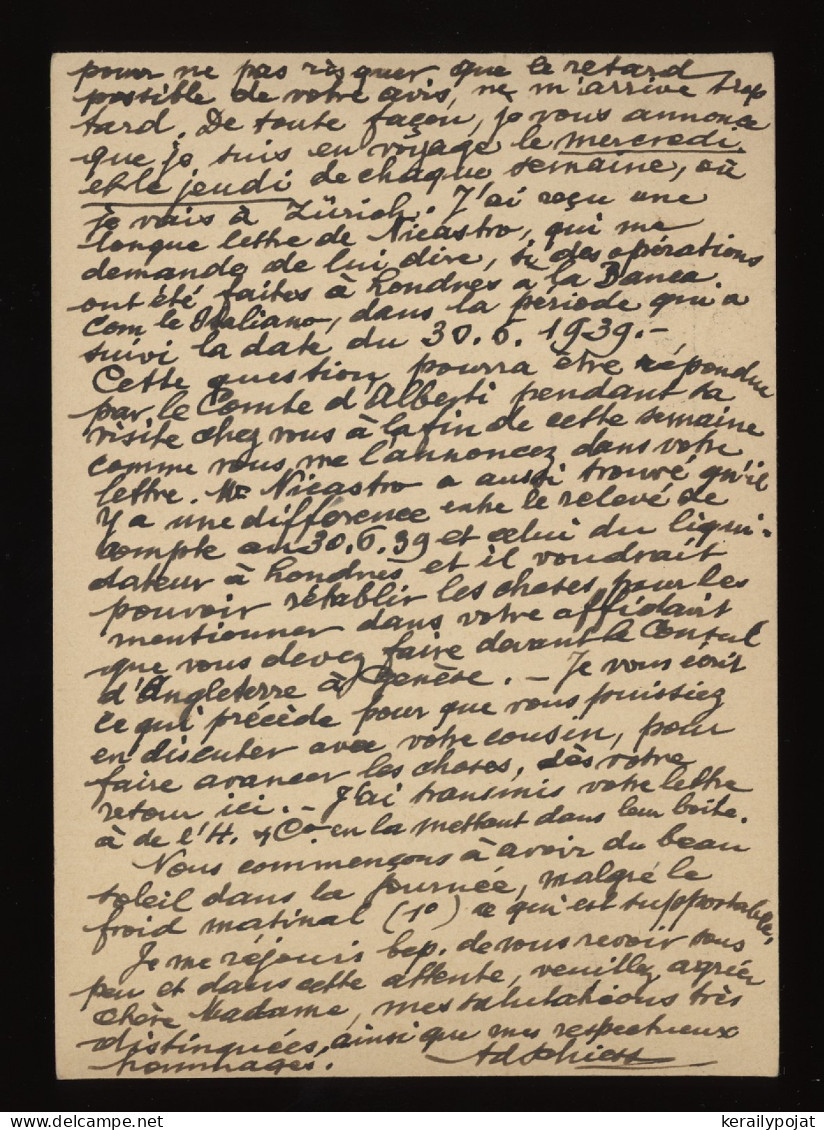 pour ne pas risquer que le retard
possible de votre avis, ne m'arrive trop
tard. De toute façon, je vous annonce
que je suis en voyage le mercredi
et le jeudi de chaque semaine, où
je vais à Zürich. J'ai reçu une
longue lettre de Nicastro, qui me
demande de lui dire, si des opérations
ont été faites à Londres a la Banca
Com le Italiano, dans la période qui a
suivi la date du 30.6.1939.-
Cette question pourra être répondue
par le Comte d'Alberti pendant sa
visite chez vous à la fin de cette semaine
comme vous me l'annoncez dans votre
lettre. Mr Nicastro a aussi trouvé qu'il
y a une différence entre le relevé de
compte au 30.6.39 et celui du liqui-
dateur à Londres et il voudrait
pouvoir rétablir les choses pour les
mentionner dans votre affidavit
que vous devez faire devant le Consul
d'Angleterre à Genève. - Je vous écrit
ce qui précède pour que vous puissiez
en discuter avec votre cousin, pour
faire avancer les choses, dès votre
retour ici. - J'ai transmis votre lettre
à de l'H. & Co. en la mettant dans leur boîte.
Nous commençons à avoir du beau
soleil dans la journée, malgré le
froid matinal (1°) ce qui est supportable.
Je me réjouis bcp. de vous revoir sous
peu et dans cette attente, veuillez agréer
chère Madame, mes salutations très
distinguées, ainsi que mes respectueux
hommages.
Ad Schiess
kerailypojat